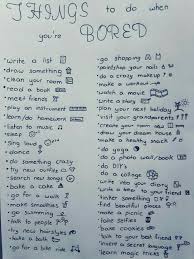 THINGS to do when
you're BORED
• write a list
• draw something
• clean your room
• read a book
• meet friends
• play an instrument
• learn/do homework
• listen to music
• sleep
• sing loud
• dance
• do something crazy
• try new outfits
• search for songs
• bake a cake
• go for a walk
• make smoothies
• go swimming
• talk to people
• try new hairstyles
• take a bath
• ride a bike
• go shopping
• paint/show your nails
• do a crazy makeup
• make a workout
• watch a movie
• write a story
• plan your next holiday
• visit your grandparents
• create your room new
• draw your dream house
• make healthy snacks
• do yoga
• do a photo wall/book
• do DIY's
• do a collage
• write into your diary
• write a letter to your friend
• find beautiful places
• make a picnic
• take selfies
• bake cookies
• talk to your friend
• invent a secret language
• learn magic tricks